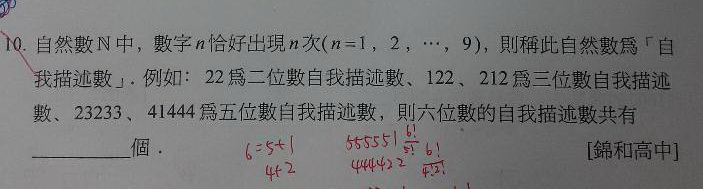 10. 自然數 N 中，數字 n 恰好出現 n 次 ( n =1，2，⋯，9)，則稱此自然數為「自
我描述數」. 例如：22 為二位數自我描述數、122、212 為三位數自我描述
數、23233、41444 為五位數自我描述數，則六位數的自我描述數共有
__________個．
[錦和高中]
6=5+1 555551 6!/5!
4+2 444422 6!/4!2!